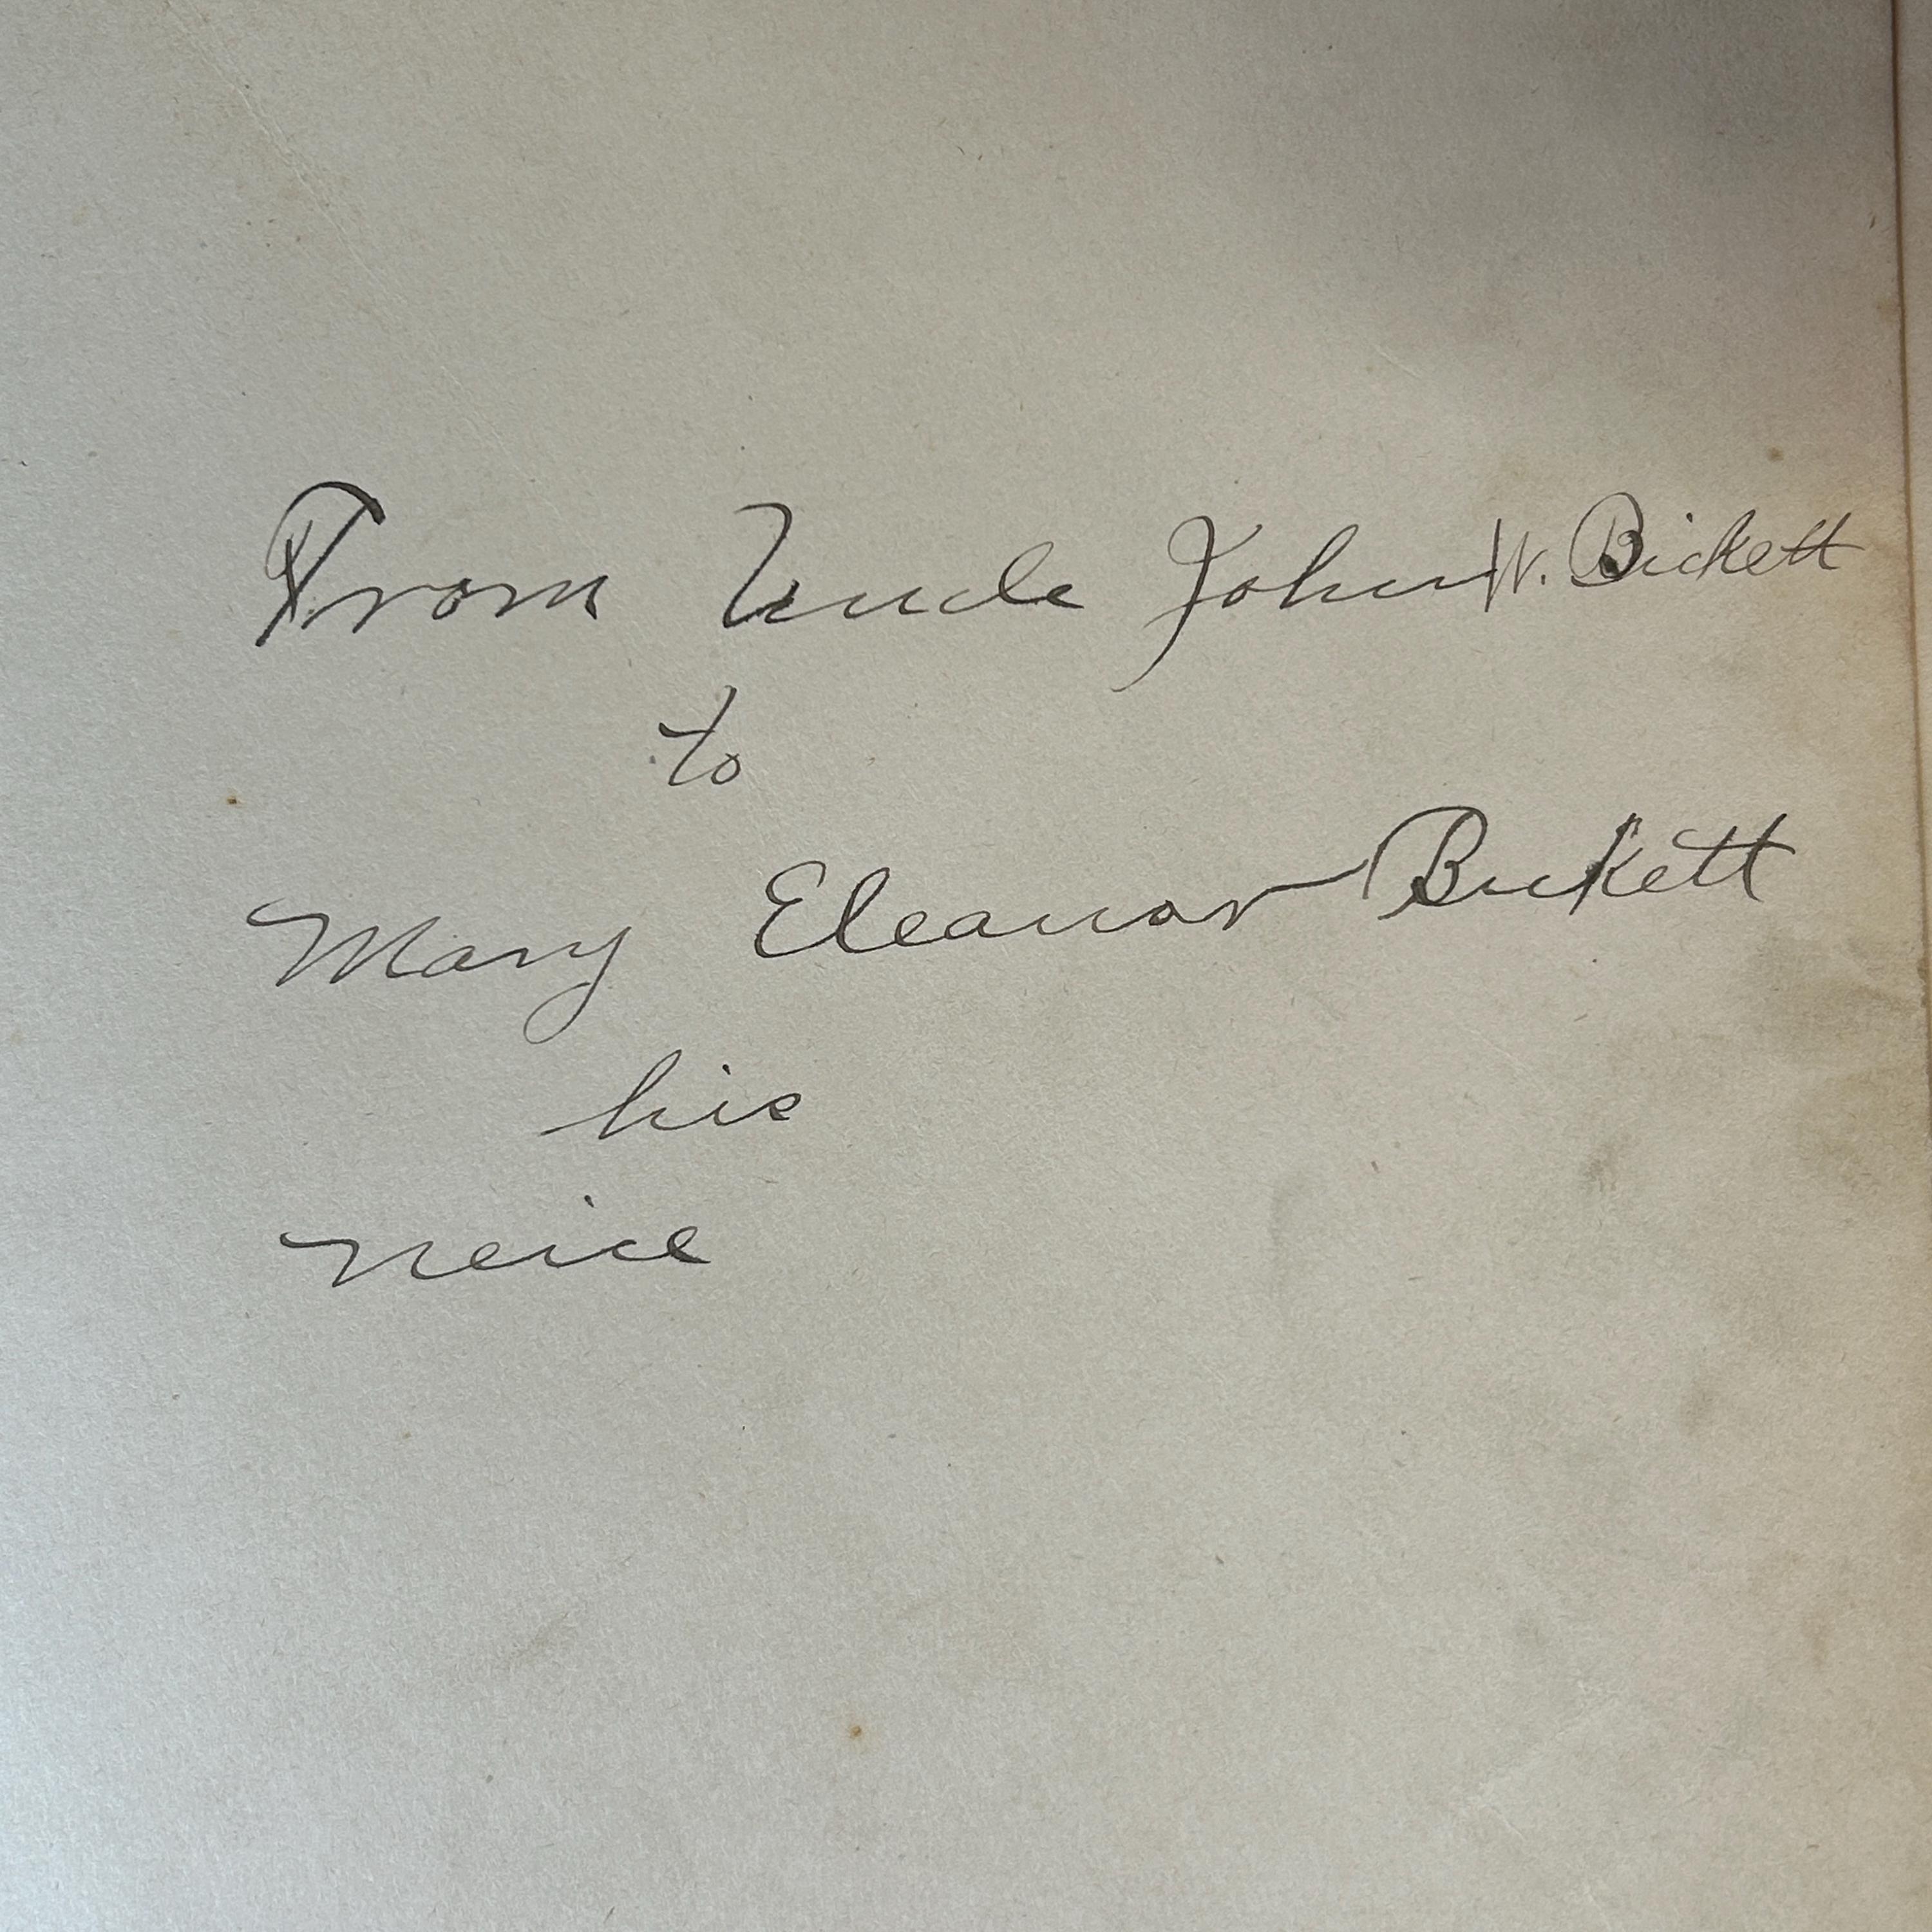 From Uncle John W. Bickett
to
Mary Eleanor Bickett
his
neice